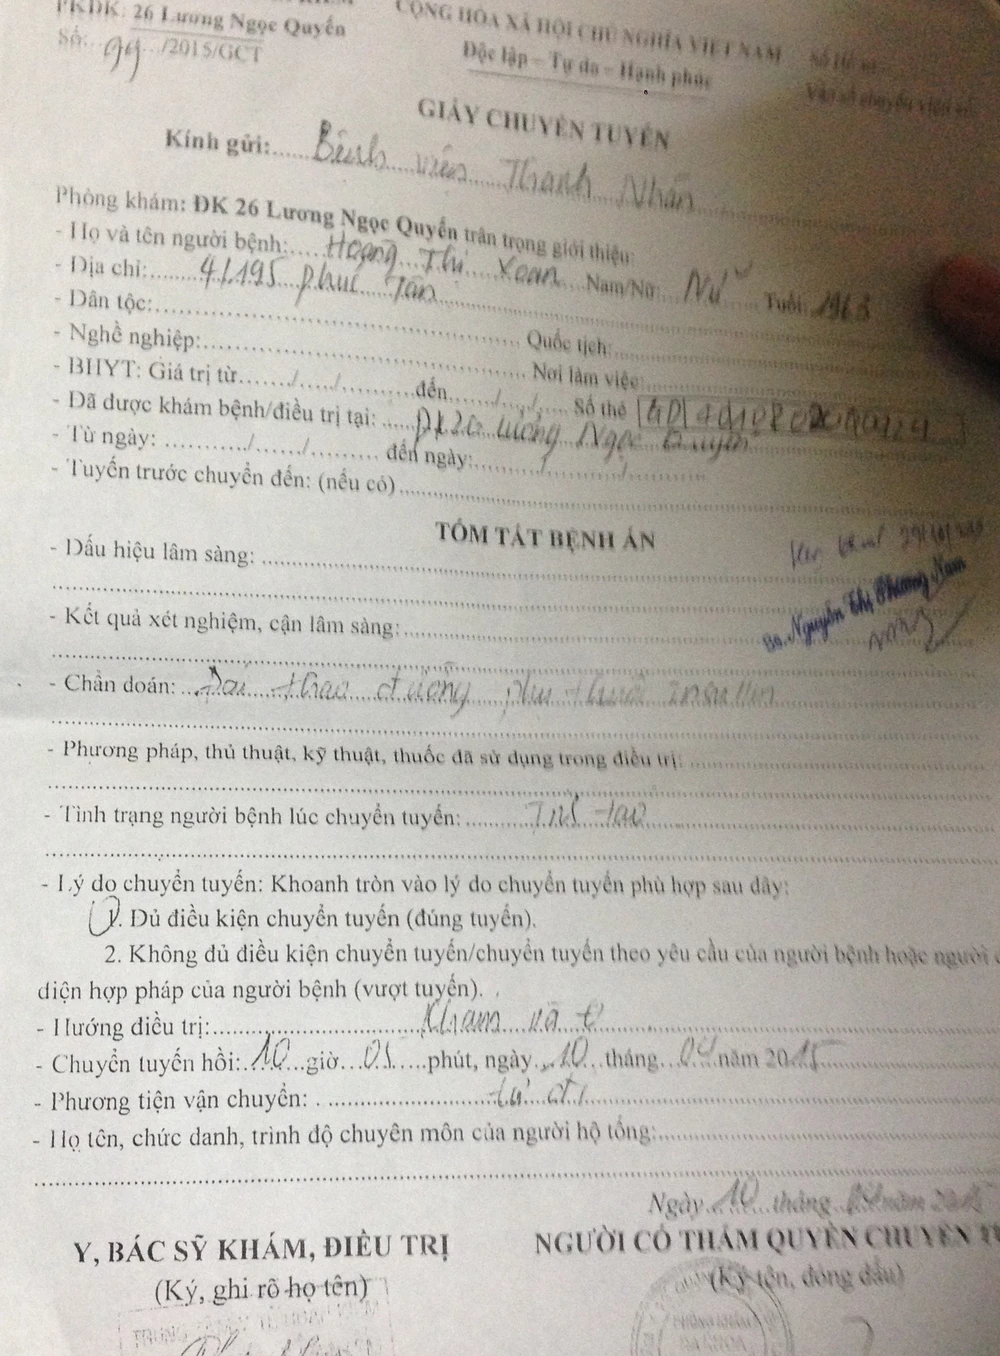 PKĐK: 26 Lương Ngọc Quyến
Số: 99 /2015/GCT
CỘNG HÒA XÃ HỘI CHỦ NGHĨA VIỆT NAM
Độc lập – Tự do – Hạnh phúc
GIẤY CHUYỂN TUYẾN
Kính gửi: Bệnh viện Thanh Nhàn
Phòng khám: ĐK 26 Lương Ngọc Quyến trân trọng giới thiệu:
- Họ và tên người bệnh: Hoàng Thị Xoan Nam/Nữ: Nữ Tuổi: 1963
- Địa chỉ: 4/195 Phúc Tân
- Dân tộc: Quốc tịch:
- Nghề nghiệp: Nơi làm việc
- BHYT: Giá trị từ / / đến / / Số thẻ
- Đã được khám bệnh/điều trị tại: Lương Ngọc Quyến
- Từ ngày: / / đến ngày: / /
- Tuyến trước chuyển đến: (nếu có)
TÓM TẮT BỆNH ÁN
- Dấu hiệu lâm sàng:
Bs. Nguyễn Thị Phương Nam
- Kết quả xét nghiệm, cận lâm sàng:
- Chẩn đoán: Đái tháo đường phụ thuộc insulin
- Phương pháp, thủ thuật, kỹ thuật, thuốc đã sử dụng trong điều trị:
- Tình trạng người bệnh lúc chuyển tuyến: Tỉnh táo
- Lý do chuyển tuyến: Khoanh tròn vào lý do chuyển tuyến phù hợp sau đây:
1. Đủ điều kiện chuyển tuyến (đúng tuyến).
2. Không đủ điều kiện chuyển tuyến/chuyển tuyến theo yêu cầu của người bệnh hoặc người
diện hợp pháp của người bệnh (vượt tuyến).
- Hướng điều trị: Khám và đ
- Chuyển tuyến hồi: 10 giờ 05 phút, ngày 10 tháng 04 năm 2015
- Phương tiện vận chuyển: tự đi
- Họ tên, chức danh, trình độ chuyên môn của người hộ tống:
Ngày 10 tháng 04 năm 2015
Y, BÁC SỸ KHÁM, ĐIỀU TRỊ
(Ký, ghi rõ họ tên)
NGƯỜI CÓ THẨM QUYỀN CHUYỂN
(Ký tên, đóng dấu)
PHÒNG KHÁM
ĐA KHOA